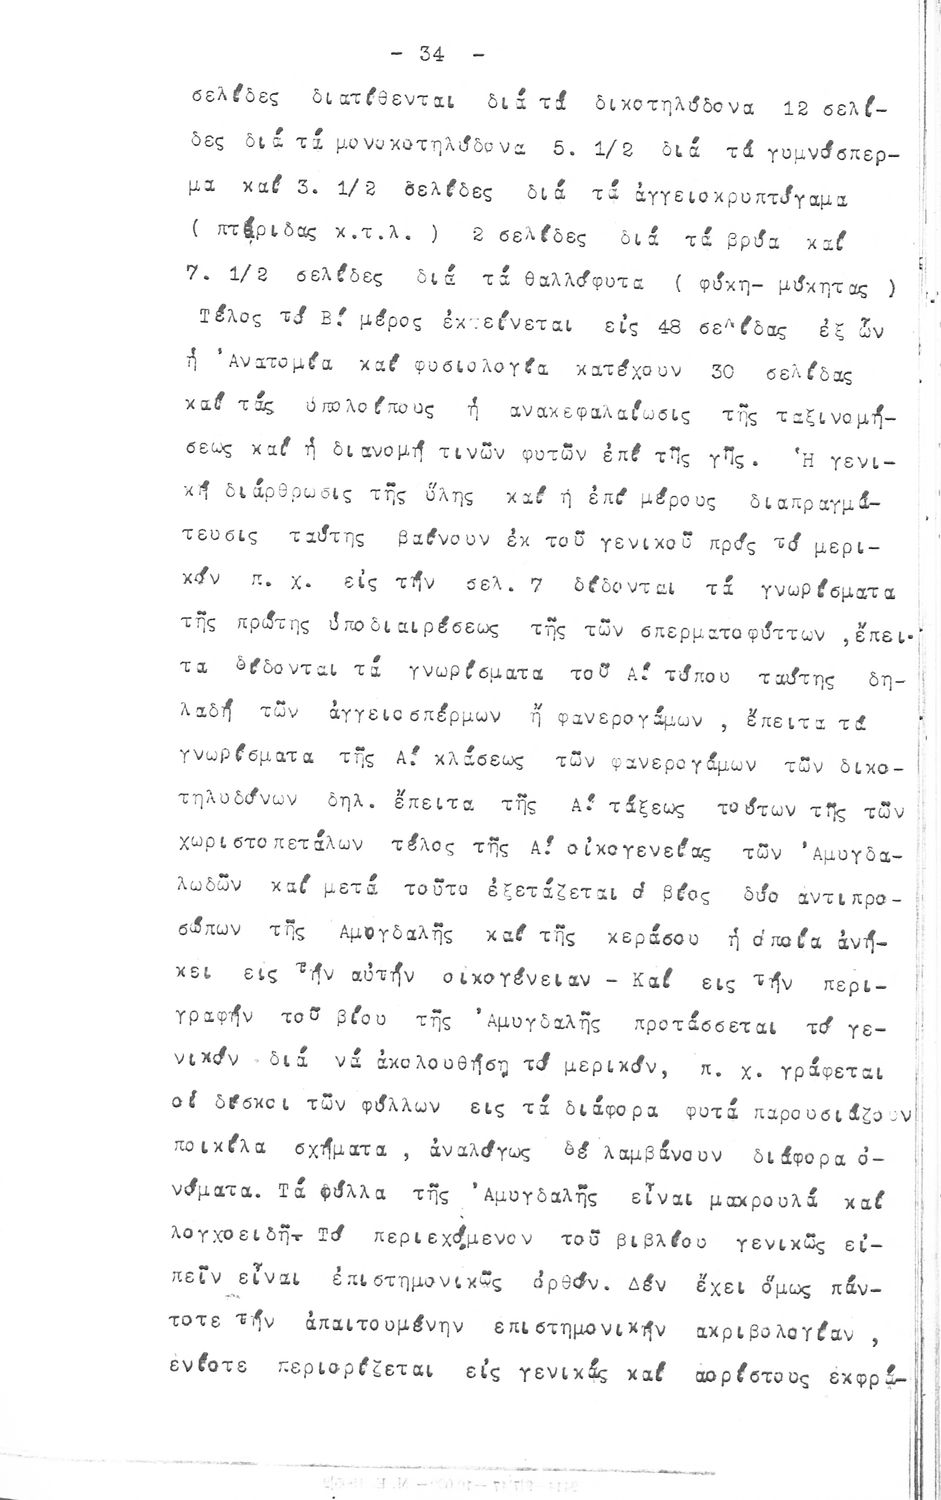 - 34 -
σελίδες διατίθενται διά τά δικοτηλύδονα 12 σελί-
δες διά τά μονοκοτηλύδονα 5. 1/2 διά τά γυμνόσπερ-
μα καί 3. 1/2 σελίδες διά τά ἀγγειοκρυπτόγαμα
( πτέριδας κ.τ.λ. ) 2 σελίδες διά τά βρύα καί
7. 1/2 σελίδες διά τά θαλλόφυτα ( φύκη- μύκητας )
Τέλος τό Β! μέρος ἐκτείνεται εἰς 48 σελίδας ἐξ ὧν
ἡ 'Ανατομία καί φυσιολογία κατέχουν 30 σελίδας
καί τάς ὑπολοίπους ἡ ἀνακεφαλαίωσις τῆς ταξινομή-
σεως καί ἡ διανομή τινῶν φυτῶν ἐπί τῆς γῆς. Ἡ γενι-
κή διάρθρωσις τῆς ὕλης καί ἡ ἐπί μέρους διαπραγμά-
τευσις ταύτης βαίνουν ἐκ τοῦ γενικοῦ πρός τό μερι-
κόν π. χ. εἰς τήν σελ. 7 δίδονται τά γνωρίσματα
τῆς πρώτης ὑποδιαιρέσεως τῆς τῶν σπερματοφύττων ,ἔπει-
τα δίδονται τά γνωρίσματα τοῦ Α! τύπου ταύτης δη-
λαδή τῶν ἀγγειοσπέρμων ἤ φανερογάμων , ἔπειτα τά
γνωρίσματα τῆς Α! κλάσεως τῶν φανερογάμων τῶν δικο-
τηλυδόνων δηλ. ἔπειτα τῆς Α! τάξεως τούτων τῆς τῶν
χωριστοπετάλων τέλος τῆς Α! οἰκογενείας τῶν 'Αμυγδα-
λωδῶν καί μετά τοῦτο ἐξετάζεται ὁ βίος δύο ἀντιπρο-
σώπων τῆς Αμυγδαλῆς καί τῆς κεράσου ἡ ὁποία ἀνή-
κει εις τήν αὐτήν οικογένειαν - Καί εις τήν περι-
γραφήν τοῦ βίου τῆς 'Αμυγδαλῆς προτάσσεται τό γε-
νικόν διά νά ἀκολουθήσῃ τό μερικόν, π. χ. γράφεται
οἱ δίσκοι τῶν φύλλων εις τά διάφορα φυτά παρουσιάζουν
ποικίλα σχήματα , ἀναλόγως δέ λαμβάνουν διάφορα ὀ-
νόματα. Τά φύλλα τῆς 'Αμυγδαλῆς εἶναι μακρουλά καί
λογχοειδῆ. Τό περιεχόμενον τοῦ βιβλίου γενικῶς εἰ-
πεῖν εἶναι ἐπιστημονικῶς ὀρθόν. Δέν ἔχει ὅμως πάν-
τοτε τήν ἀπαιτουμένην επιστημονικήν ακριβολογίαν ,
ἐνίοτε περιορίζεται εἰς γενικάς καί αορίστους ἐκφρά-